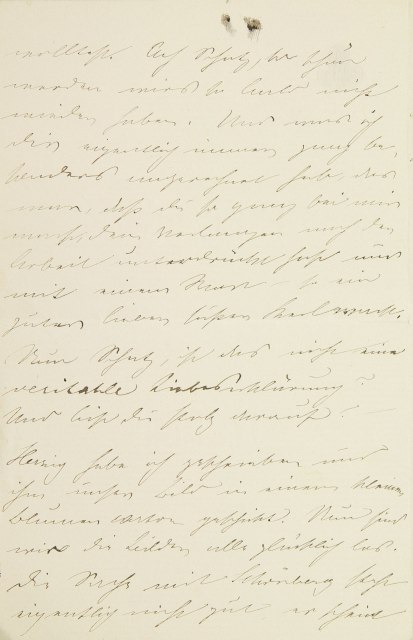 wolltest. Ach Schatz, so schön
werden wirs so bald nicht
wieder haben. Und was ich
dir eigentlich immer ganz be-
sonders angerechnet hab, das
war, daß du so ganz bei mir
warst, dein Verlangen nach der
Arbeit unterdrückt hast und
mit einem Wort – so ein
guter lieber süßer Kerl warst.
Nun Schatz, ist das nicht eine
veritable Liebeserklärung?
Und bist du stolz darauf? –
Herzig habe ich geschrieben und
ihm unser Bild in einem kleinen
Blumenkarton geschickt. Nun sind
wir die Bilder alle glücklich los.
Die Sache mit Schönberg steht
eigentlich nicht gut er scheint